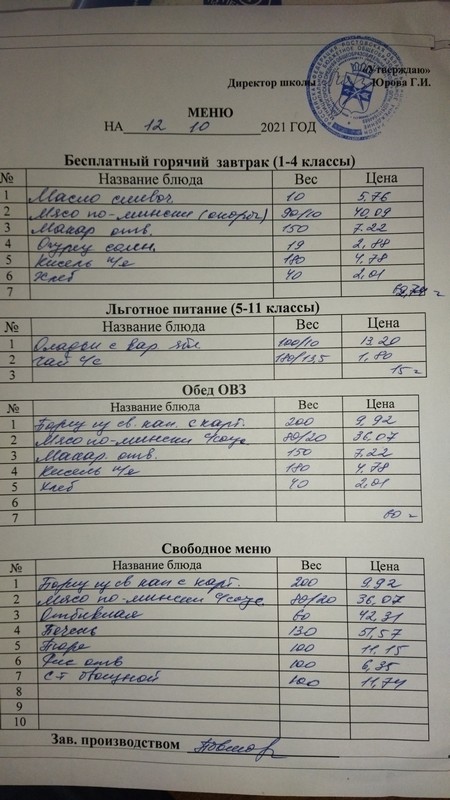 «Утверждаю»
Директор школы Юрова Г.И.
МЕНЮ
НА 12 10 2021 ГОД
Бесплатный горячий завтрак (1-4 классы)
№ Название блюда Вес Цена
1 Масло сливоч 10 5,76
2 Мясо по-мински (окорок) 90/10 40,09
3 Макар отв. 150 7.22
4 Огурец солен. 19 2,88
5 Кисель 180 4,78
6 Хлеб 40 2,01
7
Льготное питание (5-11 классы)
№ Название блюда Вес Цена
1 Оладьи с вар ябл 100/10 13 20
2 Чай с/с 180/13,5 1,80
3 15
Обед ОВЗ
№ Название блюда Вес Цена
1 Борщ из св. кап. с карт. 200 9,92
2 Мясо по-мински 80/20 36,07
3 Макар. отв. 150 7,22
4 Кисель 180 4,78
5 Хлеб 40 2,01
6
7 60
Свободное меню
№ Название блюда Вес Цена
1 Борщ из св кап с карт. 200 9,92
2 Мясо по-мински 80/20 36,07
3 Отбивная 60 42,31
4 Печень 130 51,57
5 Пюре 100 11,15
6 Рис отв 100 6,35
7 100 11,74
8
9
10
Зав. производством